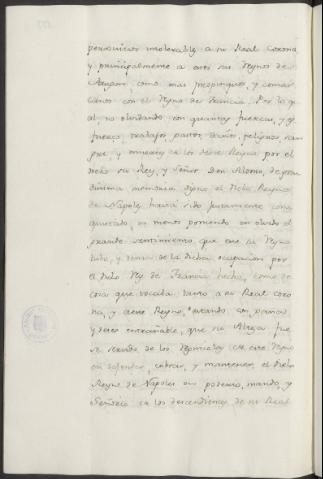 perjuicios intolerables a su Real Corona
y principalmente a esos sus Reynos de
Aragon, como mas propinquos, y comar
canos con el Reyno de Francia. Por lo q.
al, no olvidando con quantas fuerzas, y
trabajos, gastos, daños, peligros, san
gre, y muertes de los deste Reyno, por el
dicho su Rey, y Señor Don Alonso, de gran
dissima memoria digno, el dicho Reyno
de Napoles havia sido justamente con
quistado, no menos poniendo en olvido el
grande sentimiento, que este su Reyno
tubo, y tiene de la dicha ocupacion por
el dicho Rey de Francia hecha, como de
cosa que tocaba tanto a su Real coro
na, y a este Reyno,
y deseo entrañable, que su Alteza fue
se servido de los Reynicolas de este Reyno
en defender, cobrar, y mantener el dicho
Reyno de Napoles en poderio, mando, y
Señorio de los descendientes de su Real